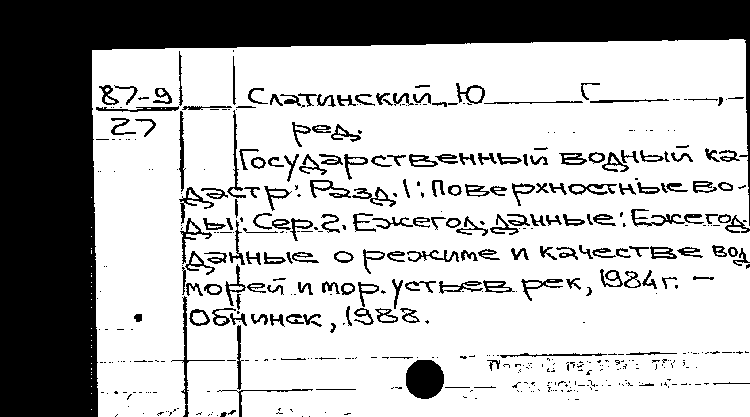 87-9 Слатинский, Ю Г ,
27 ред.
Государственный водный ка-
дастр: Разд. 1: Поверхностные во-
ды: Сер. 2. Ежегод. данные: Ежегод.
данные о режиме и качестве вод
морей и мор. устьев рек, 1984г. –
Обнинск, 1988.